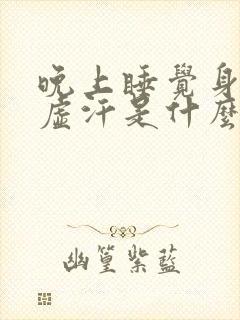 晚上睡覺身
虛汗是什麼
幽篁紫藍